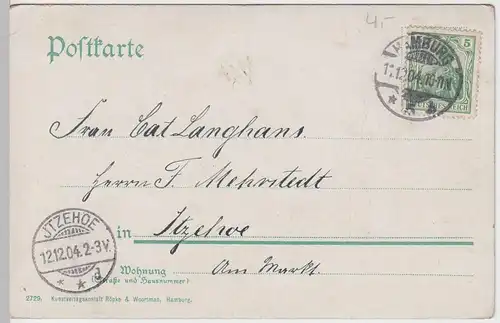 4.-
Postkarte
5
HAMBURG
11.12.04.
REICH
Frau Cat Langhans.
Herrn F. Mehrstedt
in Itzehoe
JTZEHOE
12.12.04.2-3V.
* * d
Wohnung
(Straße und Hausnummer)
Am Markt.
2729. Kunstverlagsanstalt Röpke & Woortman, Hamburg.